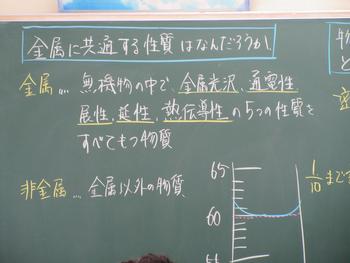 金属に共通する性質はなんだろうか。
金属… 無機物の中で、金属光沢、通電性
展性、延性、熱伝導性の5つの性質を
すべてもつ物質
非金属… 金属以外の物質
65
60
1/10 まで